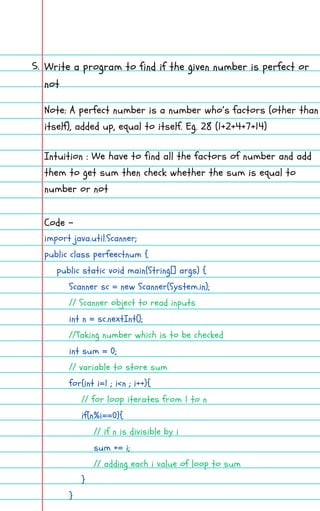 5. Write a program to find if the given number is perfect or
not
Note: A perfect number is a number who's factors (other than
itself), added up, equal to itself. Eg. 28 (1+2+4+7+14)
Intuition : We have to find all the factors of number and add
them to get sum then check whether the sum is equal to
number or not
Code -
import java.util.Scanner;
public class perfeectnum {
public static void main(String[] args) {
Scanner sc = new Scanner(System.in);
// Scanner object to read inputs
int n = sc.nextInt();
//Taking number which is to be checked
int sum = 0;
// variable to store sum
for(int i=1 ; i<n ; i++){
// for loop iterates from 1 to n
if(n%i==0){
// if n is divisible by i
sum += i;
// adding each i value of loop to sum
}
}